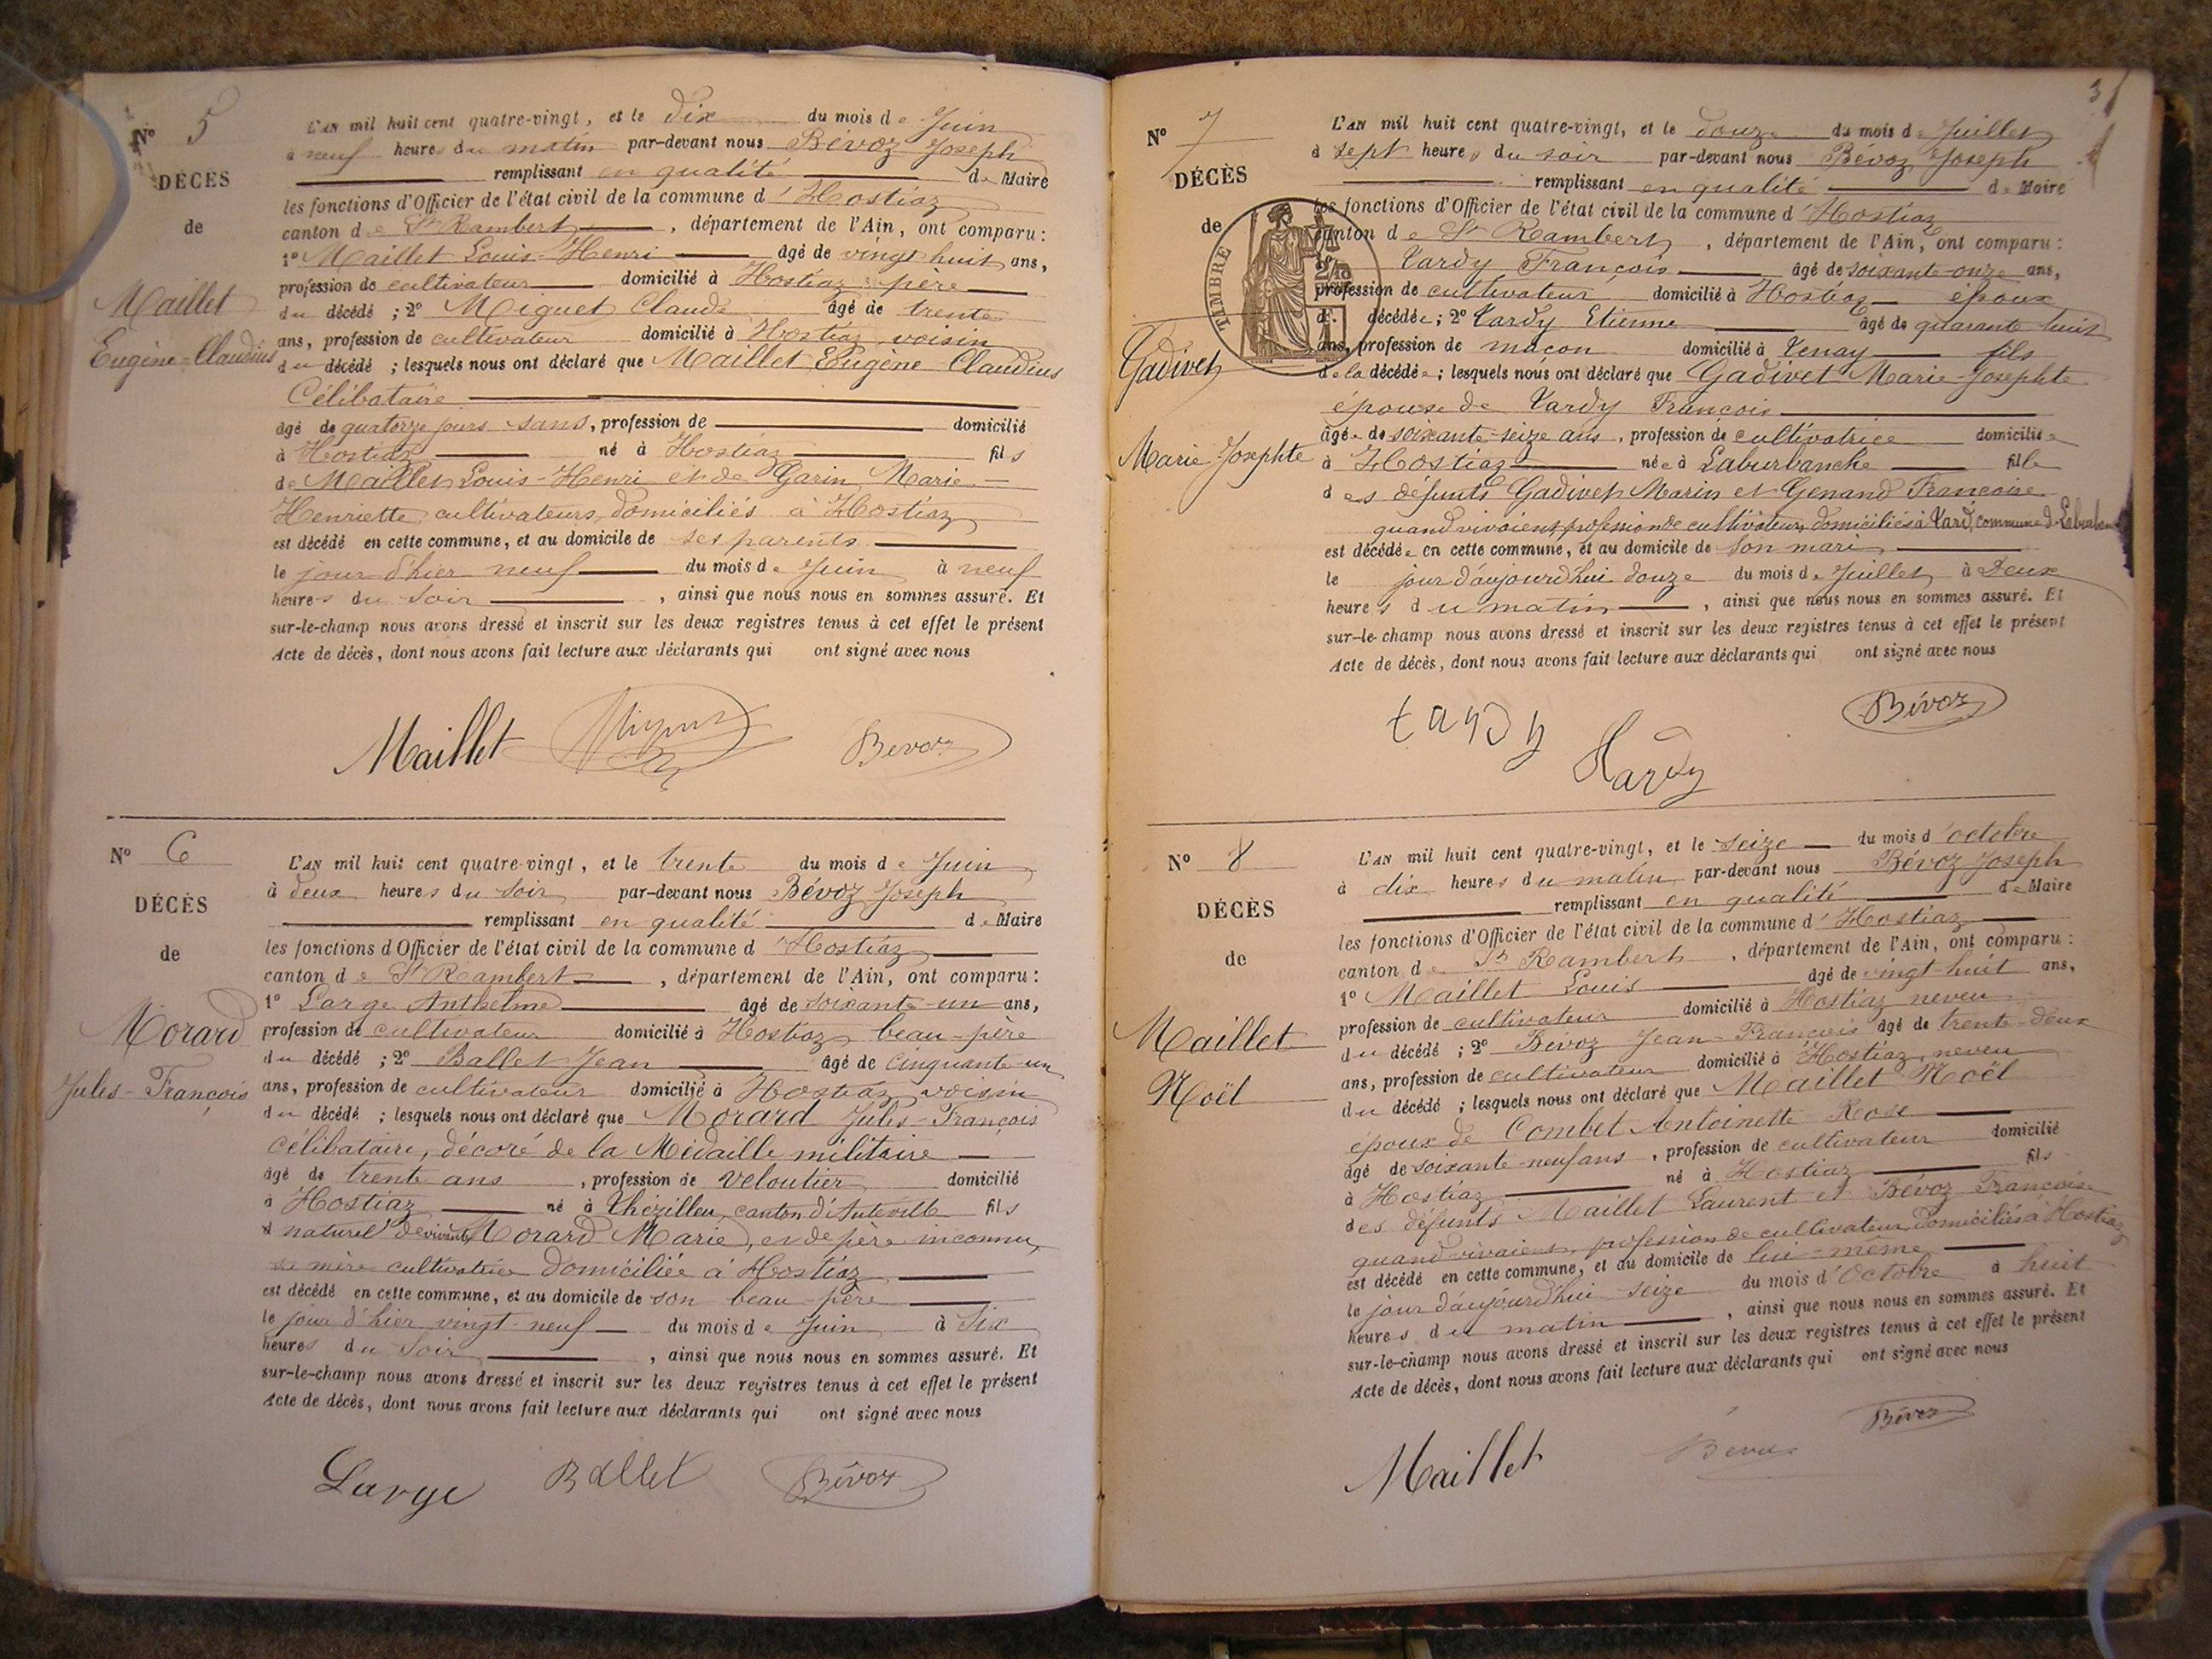 N° 5
DÉCÈS
de
Maillet
Eugène-Claudius
L'AN mil huit cent quatre-vingt, et le dix du mois de Juin
à neuf heures du matin par-devant nous Bévoz Joseph
remplissant en qualité de Maire
les fonctions d'Officier de l'état civil de la commune d'Hostiaz
canton de St Rambert, département de l'Ain, ont comparu :
1° Maillet Louis-Henri âgé de vingt huit ans,
profession de cultivateur domicilié à Hostiaz père
du décédé ; 2° Miguet Claude âgé de trente
ans, profession de cultivateur domicilié à Hostiaz voisin
du décédé ; lesquels nous ont déclaré que Maillet Eugène Claudius
Célibataire
âgé de quatorze jours sans, profession de domicilié
à Hostiaz né à Hostiaz fils
de Maillet Louis-Henri et de Garin Marie
Henriette, cultivateurs, domiciliés à Hostiaz
est décédé en cette commune, et au domicile de ses parents
le jour d'hier neuf du mois de Juin à neuf
heures du soir, ainsi que nous nous en sommes assuré. Et
sur-le-champ nous avons dressé et inscrit sur les deux registres tenus à cet effet le présent
Acte de décès, dont nous avons fait lecture aux déclarants qui ont signé avec nous
Maillet Miguet Bévoz
N° 6
DÉCÈS
de
Morard
Jules-François
L'AN mil huit cent quatre-vingt, et le trente du mois de Juin
à deux heures du soir par-devant nous Bévoz Joseph
remplissant en qualité de Maire
les fonctions d'Officier de l'état civil de la commune d'Hostiaz
canton de St Rambert, département de l'Ain, ont comparu :
1° Large Anthelme âgé de soixante-un ans,
profession de cultivateur domicilié à Hostiaz beau-père
du décédé ; 2° Ballet Jean âgé de cinquante-un
ans, profession de cultivateur domicilié à Hostiaz voisin
du décédé ; lesquels nous ont déclaré que Morard Jules-François
Célibataire, décoré de la Médaille militaire
âgé de trente ans, profession de veloutier domicilié
à Hostiaz né à Thézillieu, canton d'Auteville fils
naturel de vivante Morard Marie, et de père inconnu,
sa mère cultivatrice domiciliée à Hostiaz
est décédé en cette commune, et au domicile de son beau-père
le jour d'hier vingt-neuf du mois de Juin à Six
heures du Soir, ainsi que nous nous en sommes assuré. Et
sur-le-champ nous avons dressé et inscrit sur les deux registres tenus à cet effet le présent
Acte de décès, dont nous avons fait lecture aux déclarants qui ont signé avec nous
Large Ballet Bévoz
3
N° 7
DÉCÈS
de
TIMBRE
Gadivet
Marie Josephte
L'AN mil huit cent quatre-vingt, et le douze du mois de Juillet
à sept heures du soir par-devant nous Bévoz Joseph
remplissant en qualité de Maire
les fonctions d'Officier de l'état civil de la commune d'Hostiaz
canton de St Rambert, département de l'Ain, ont comparu :
Tardy François âgé de soixante-onze ans,
profession de cultivateur domicilié à Hostiaz époux
décédée ; 2° Tardy Etienne âgé de quarante huit
ans, profession de maçon domicilié à Tenay fils
de la décédée ; lesquels nous ont déclaré que Gadivet Marie-Josephte
épouse de Tardy François
âgée de soixante-seize ans, profession de cultivatrice domiciliée
à Hostiaz née à Laburbanche fille
des défunts Gadivet Marin et Genand Françoise
quand vivaient, profession de cultivateurs, domiciliés à Tard, commune de Laburbanche
est décédée en cette commune, et au domicile de son mari
le jour d'aujourd'hui douze du mois de Juillet à Deux
heures du matin, ainsi que nous nous en sommes assuré. Et
sur-le-champ nous avons dressé et inscrit sur les deux registres tenus à cet effet le présent
Acte de décès, dont nous avons fait lecture aux déclarants qui ont signé avec nous
tardy Tardy Bévoz
N° 8
DÉCÈS
de
Maillet
Noël
L'AN mil huit cent quatre-vingt, et le seize du mois d'octobre
à dix heures du matin par-devant nous Bévoz Joseph
remplissant en qualité de Maire
les fonctions d'Officier de l'état civil de la commune d'Hostiaz
canton de St Rambert, département de l'Ain, ont comparu :
1° Maillet Louis âgé de vingt-huit ans,
profession de cultivateur domicilié à Hostiaz neveu
du décédé ; 2° Bevoz Jean-François âgé de trente-deux
ans, profession de cultivateur domicilié à Hostiaz, neveu
du décédé ; lesquels nous ont déclaré que Maillet Noël
époux de Combet Antoinette Rose
âgé de soixante-neuf ans, profession de cultivateur domicilié
à Hostiaz né à Hostiaz fils
des défunts Maillet Laurent et Bévoz Françoise
quand vivaient, profession de cultivateur, domiciliés à Hostiaz
est décédé en cette commune, et au domicile de lui-même
le jour d'aujourd'hui seize du mois d'Octobre à huit
heures du matin, ainsi que nous nous en sommes assuré. Et
sur-le-champ nous avons dressé et inscrit sur les deux registres tenus à cet effet le présent
Acte de décès, dont nous avons fait lecture aux déclarants qui ont signé avec nous
Maillet Bevoz Bévoz